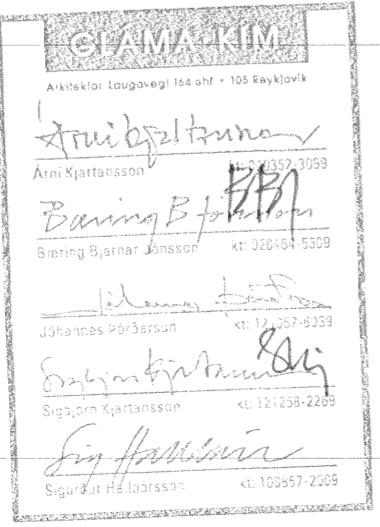 GLÁMA•KÍM
Arkitektar Laugavegi 164 ehf • 105 Reykjavík
Árni Kjartansson
Árni Kjartansson
Bæring B Jónsson
BBJ
Bæring Bjarnar Jónsson kt: 020464-5309
Jóhannes
Jóhannes Þórðarson
Sigbjörn Kjartansson
Sigbjörn Kjartansson kt: 121258-2269
Sig Halldórs
Sigurður Halldórsson kt: 100857-2009